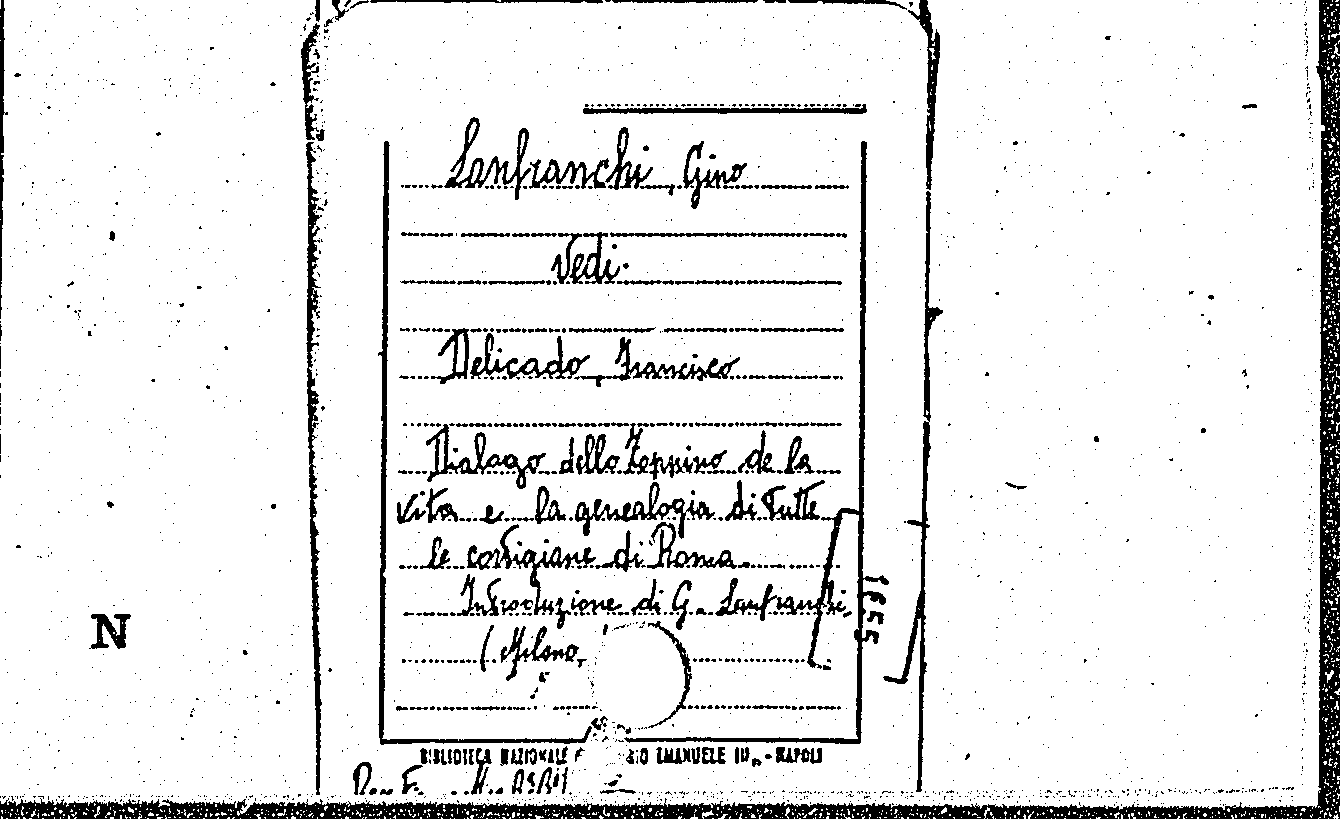 Lanfranchi, Gino
Vedi.
Delicado, Francisco
Dialago dello Zoppino de la
vita e la genealogia di tutte
le cortigiane di Roma.
Introduzione di G. Lanfranchi,
(Milano,
1655
N
BIBLIOTECA NAZIONALE EMANUELE III - NAPOLI